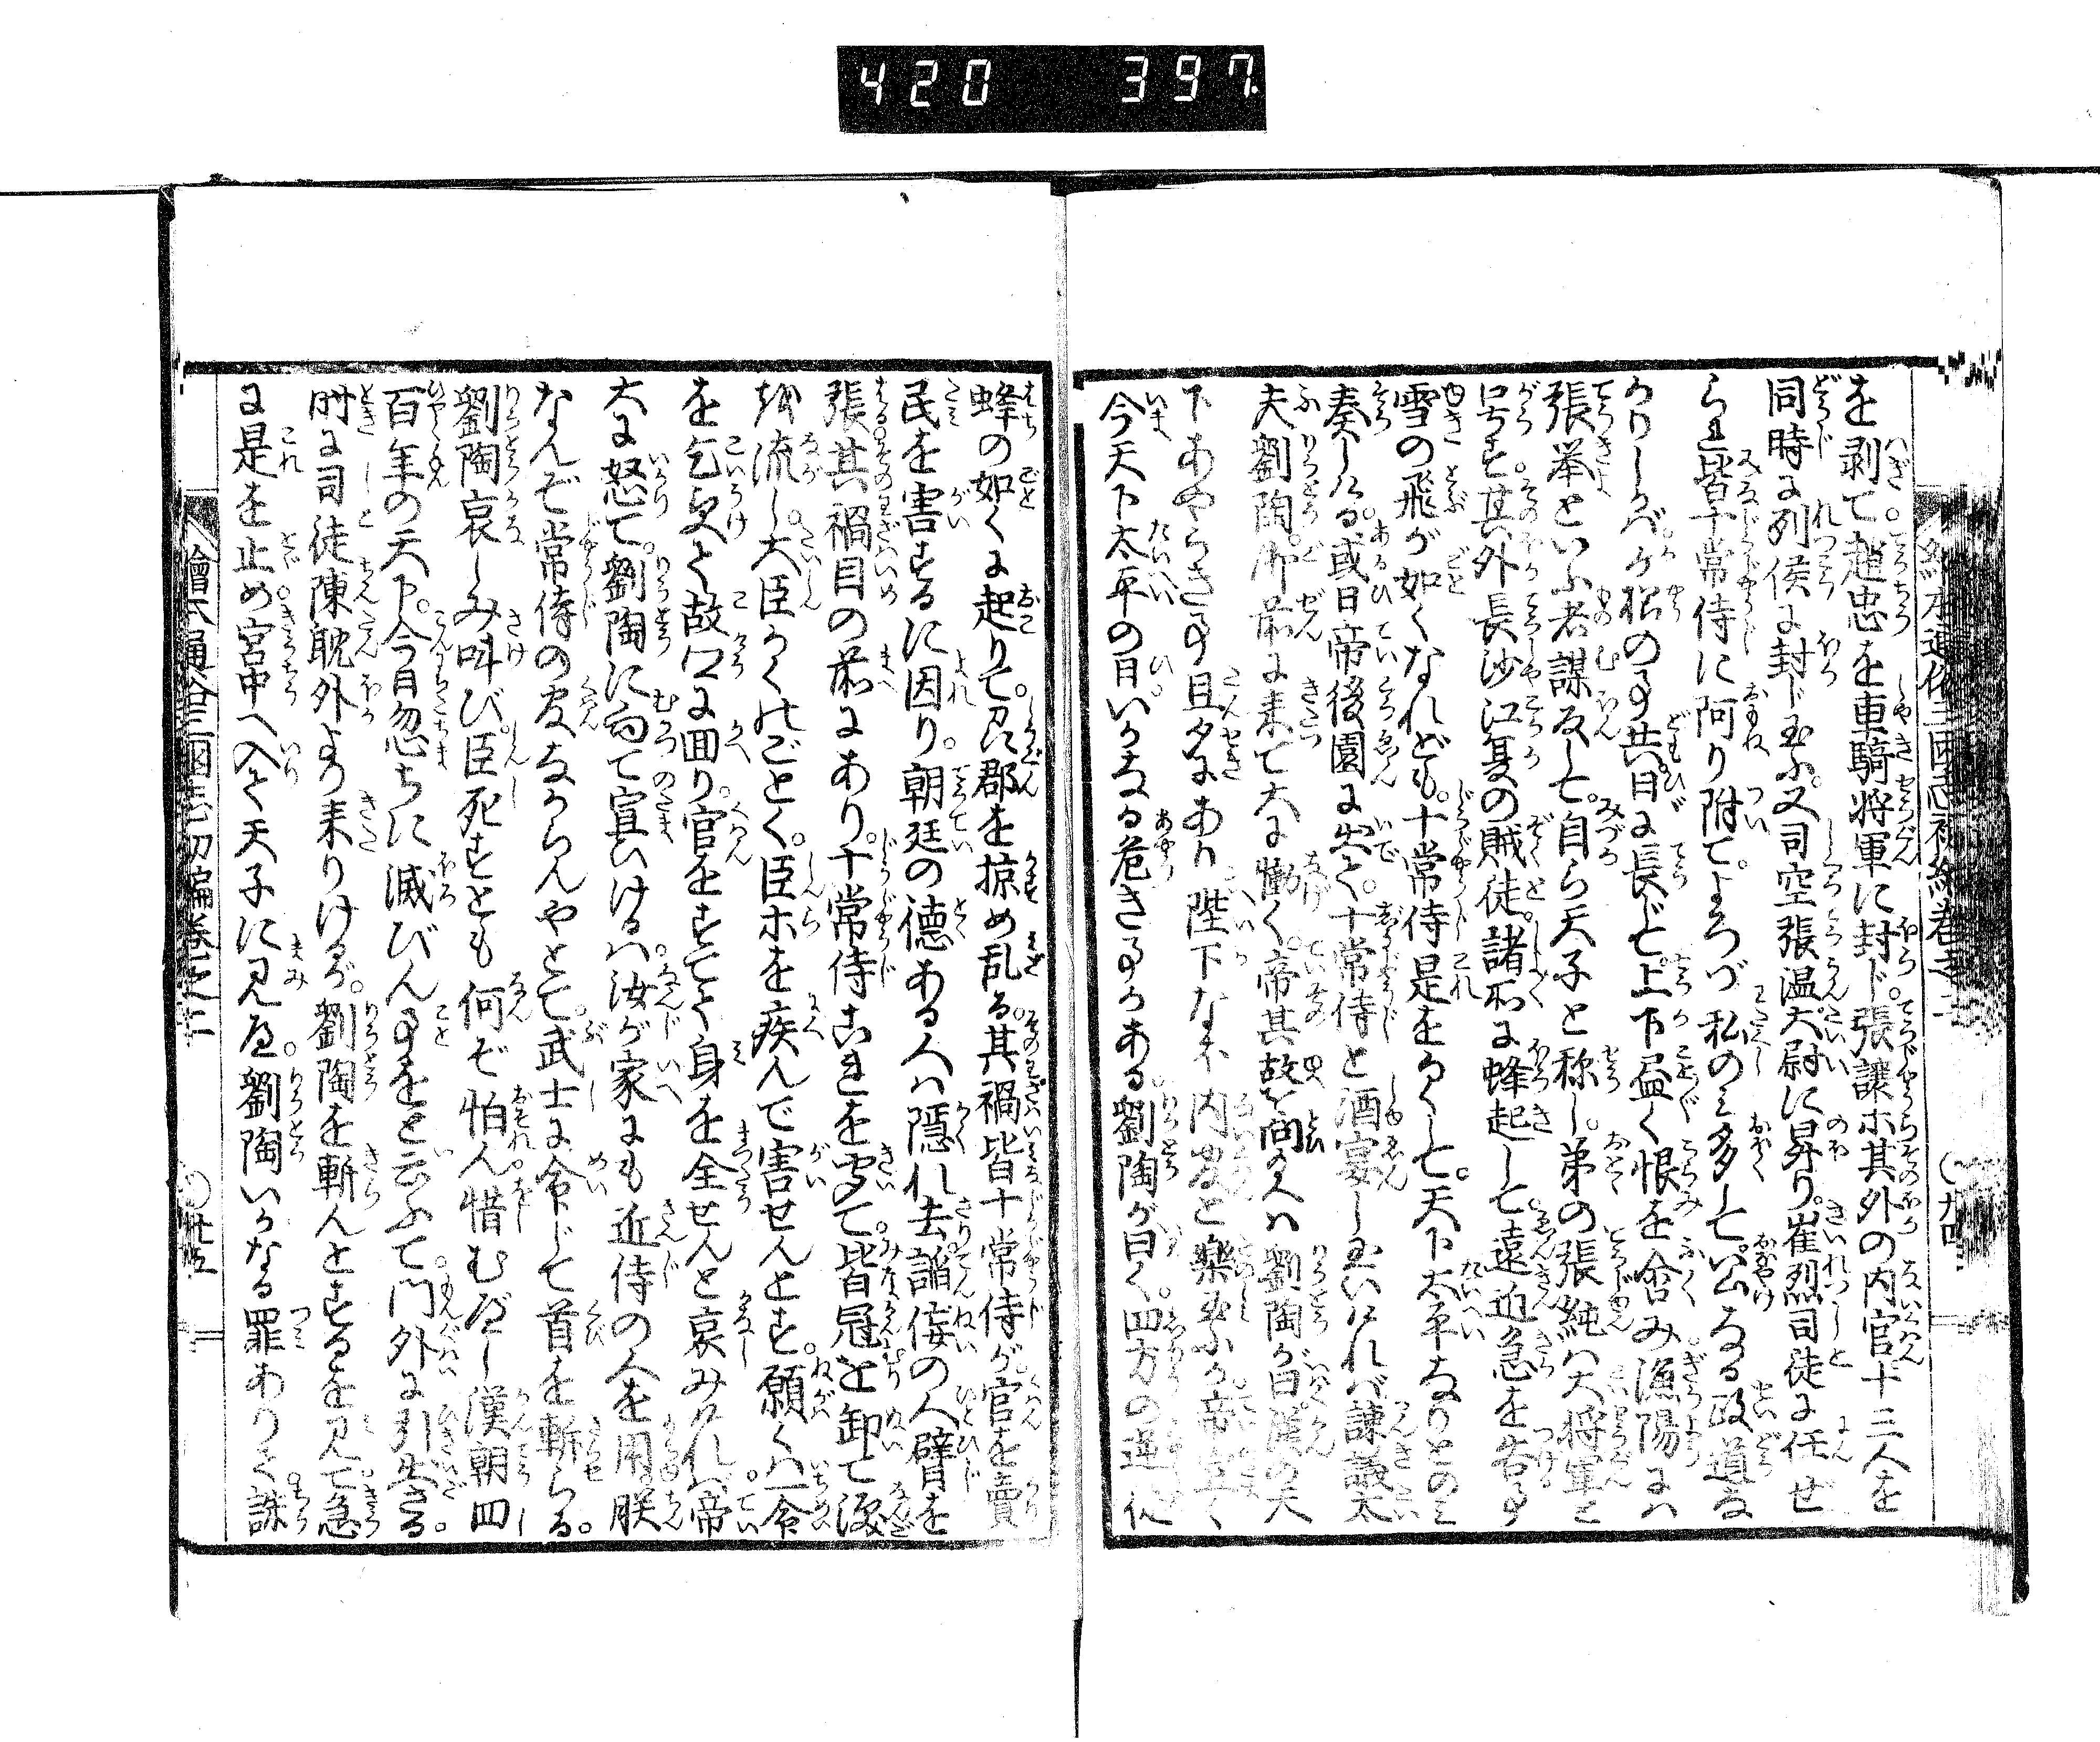 420 397
を剥て趙忠を車騎将軍に封じ。張譲ホ其外の内官十三人を
同時に列侯に封じ玉ふ。又司空張温大尉に昇り。崔烈司徒に任せ
られ皆十常侍に阿り附て。よろづ私のミ多して。公なる政道な
かりしかバ。
の事共日に長じ。上下尽く恨を含み漁陽にハ
張挙といふ者謀反して。自ら天子と称し。弟の張純ハ大将軍と
号す其外長沙江夏の賊徒。諸所に蜂起して遠近急を告る事
雪の飛が如くなれども。十常侍是をかくして。天下太平なりとのミ
奏しける。或日帝後園に出て。十常侍と酒宴し玉いけれバ諫議太
夫劉陶。御前に来て大に慟く。帝其故を問玉へハ劉陶が曰。漢の天
下あやうき事旦夕にあり陛下なを内官と楽玉ふか帝宣く
今天下太平の日。いかなる危き事かある。劉陶が曰く。四方の
蜂の如くに起りて。州郡を掠め乱る。其禍皆十常侍が官を賣
民を害するに因り。朝廷の徳ある人ハ隠れ去。諂侫の人臂を
張其禍目の前にあり。十常侍これを聞て。皆冠を卸て涙
を流し。大臣かくのごとく。臣ホを疾んで害せんとす。願くハ一命
を乞受て故口に回り。官をすてて身を全せんと哀みけれハ帝
大に怒て。劉陶に向て宣ひけるハ。汝が家にも近侍の人を用朕
なんぞ常侍の官なからんやとて。武士に命じて首を斬らる。
劉陶哀しみ叫び。臣死すとも何ぞ怕ん惜むべし漢朝四
百年の天下。今日忽ちに滅びん事をと云ふて。門外に引出さる。
時に司徒陳耽外より来りけるが。劉陶を斬んとするを見て。急
に是を止め。宮中へ入て天子に見へ。劉陶いかなる罪ありて誅
繪本通俗三国志初編巻之二
〇廿五